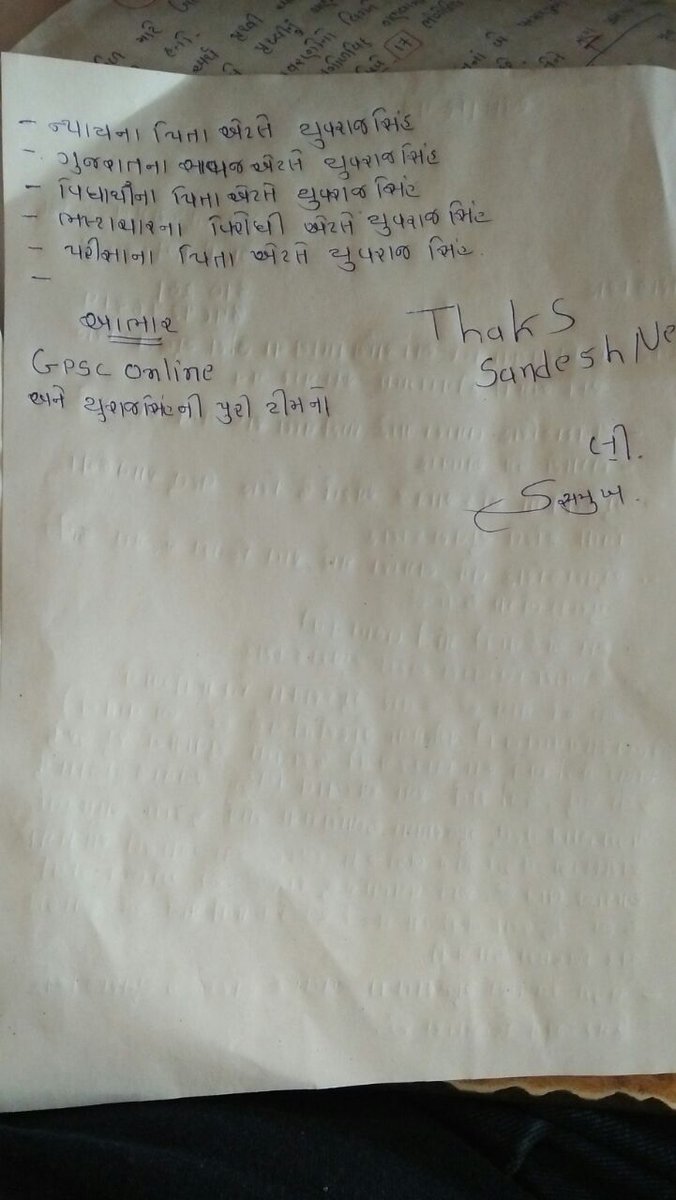 - ન્યાયના પિતા એટલે યુવરાજસિંહ
- ગુજરાતના આવાજ એટલે યુવરાજસિંહ
- વિધાર્થીના પિતા એટલે યુવરાજસિંહ
- ભ્રષ્ટાચારના વિરોધી એટલે યુવરાજસિંહ
- પરીક્ષાના પિતા એટલે યુવરાજ સિંહ.
-
આભાર
GPSC online
અને યુવરાજસિંહની પુરી ટીમનો
Thaks
Sandesh Ne
લી.